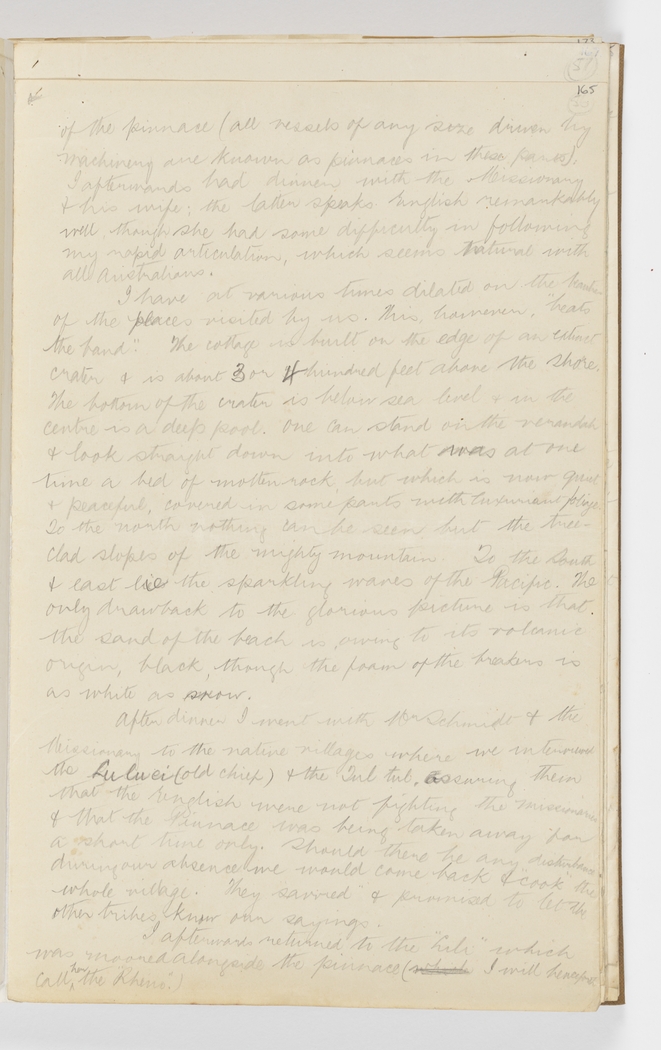 165
of the pinnace (all vessels of any size driven by
machinery are known as pinnaces in these parts).
I afterwards had dinner with the Missionary
& his wife; the latter speaks English remarkably
well, though she had some difficulty in following
my rapid articulation, which seems natural with
all Australians.
I have at various times dilated on the
of the places visited by us. This, however, "beats
the band". The cottage is built on the edge of an extinct
crater & is about 3 or 4 hundred feet above the shore.
The bottom of the crater is below sea level & in the
centre is a deep pool. One can stand on the verandah
& look straight down into what was at one
time a bed of molten rock, but which is now quiet
& peaceful, covered in some parts with luxuriant foliage.
To the north nothing can be seen but the tree-
clad slopes of the mighty mountain. To the South
& east lie the sparkling waves of the Pacific. The
only drawback to the glorious picture is that
the sand of the beach is, owing to its volcanic
origin, black, though the foam of the breakers is
as white as snow.
After dinner I went with Mr Schmidt & the
Missionary to the native villages where we interviewed
the Luluai (old chief) & the Tul tul, assuring them
that the English were not fighting the missionaries
& that the Pinnace was being taken away for
a short time only. Should there be any disturbance
during our absence we would come back & "cook" the
whole village. They "savvied" & promised to let the
other tribes know our sayings.
I afterwards returned to the "Lili" which
was moored alongside the pinnace (which I will henceforth
call, her, the Rhein".)